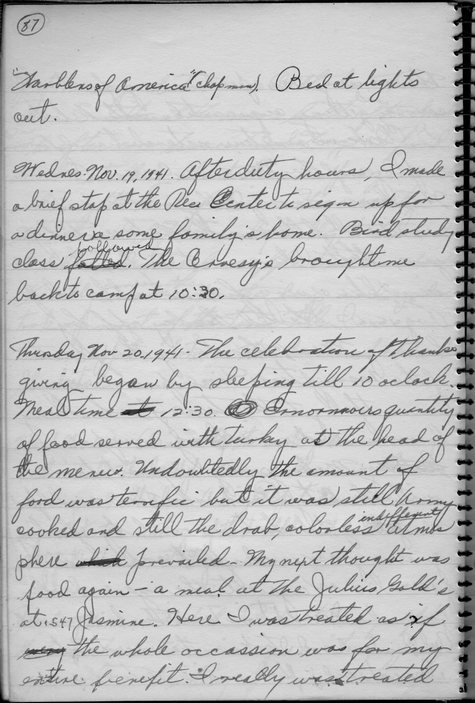 87
"Warblers of America" (Chapman). Bed at lights
out.
Wednes. Nov. 19, 1941. After duty hours, I made
a brief stop at the Rec Center to sign up for
a dinner a some family's home. Bird study
followed
class. The brought me
back to camp at 10:30.
Thursday Nov 20, 1941 - The celebration of Thanks
giving began by sleeping till 10 oclock.
Meal time at 12:30. Enormous quantity
of food served with turkey as the head of
the menu. Undoubtedly the amount of
food was terrific but it was still Army
indifferent
cooked and still the drab, colorless atmos
phere which prevailed - My next thought was
food again - a meal at the Julius Gold's
at 547 Jasmine. Here I was treated as if
the whole occassion was for my
entire benefit. I really was treated